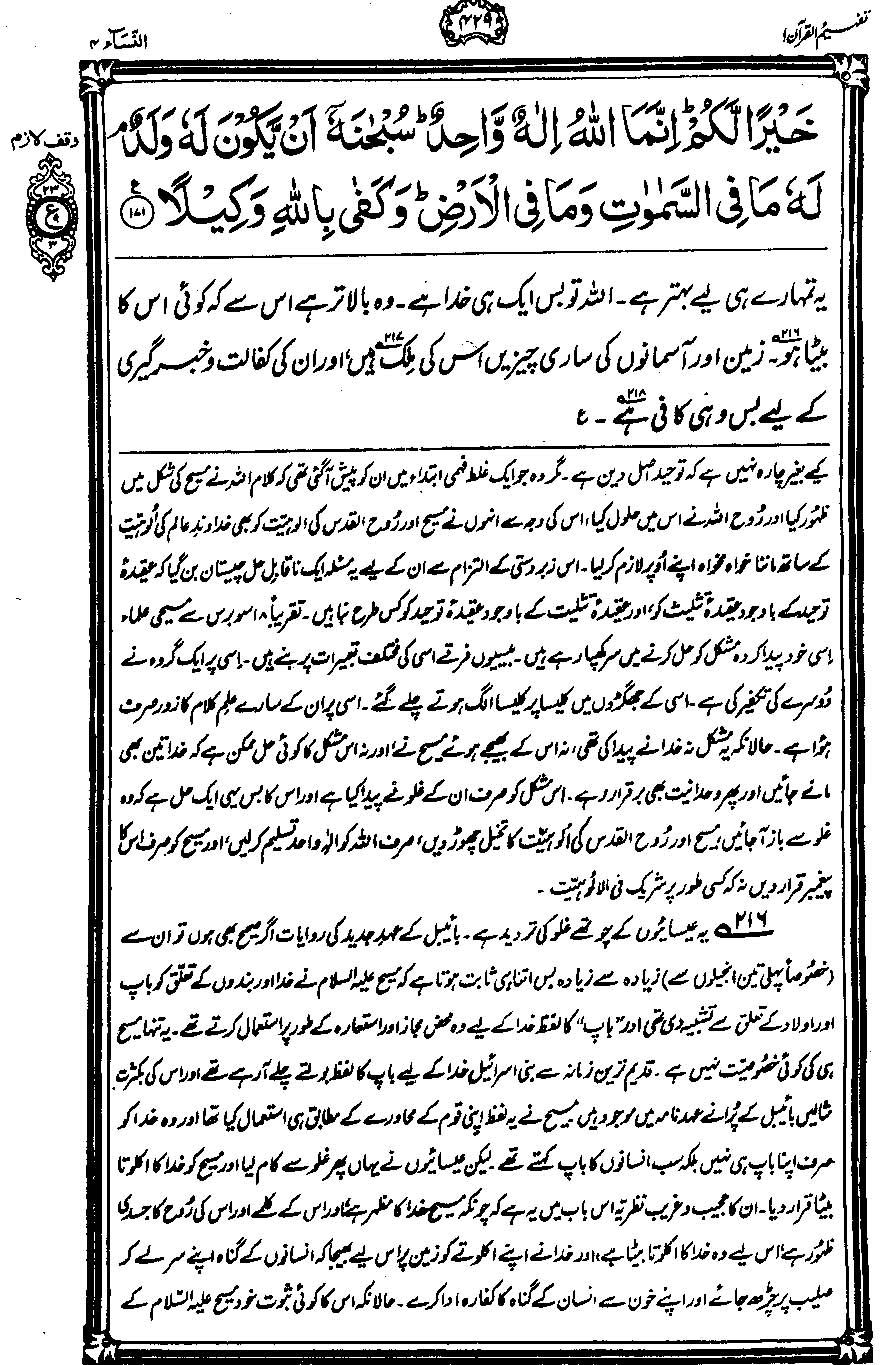 تفہیم القرآن ۱
۴۲۹
النّسآء ۴
خَيْرًا لَّكُمْ ؕ اِنَّمَا اللّٰهُ اِلٰهٌ وَّاحِدٌ ؕ سُبْحٰنَهٗۤ اَنْ يَّكُوْنَ لَهٗ وَلَدٌ ۘ
وقف لازم
لَهٗ مَا فِى السَّمٰوٰتِ وَمَا فِى الْاَرْضِ ؕ وَكَفٰى بِاللّٰهِ وَكِيْلًا ﴿۱۷۱﴾ ع
۲۳
ع
۳
یہ تمہارے ہی لیے بہتر ہے۔ اللہ تو بس ایک ہی خدا ہے۔ وہ بالاتر ہے اس سے کہ کوئی اس کا
بیٹا ہو۔۲۱۶ زمین اور آسمانوں کی ساری چیزیں اُس کی مِلک ہیں،۲۱۷ اور ان کی کفالت و خبر گیری
کے لیے بس وہی کافی ہے۲۱۸۔ ع
کیے بغیر چارہ نہیں ہے کہ توحید اصل دین ہے۔ مگر وہ جو ایک غلط فہمی ابتداء میں ان کو پیش آگئی تھی کہ کلام اللہ نے مسیح کی شکل میں
ظہُور کیا اور رُوح اللہ نے اس میں حلول کیا، اس کی وجہ سے انہوں نے مسیح اور رُوح القدس کی الوہیّت کو بھی خداوندِ عالم کی اُلوہیّت
کے ساتھ ماننا خواہ مخواہ اپنے اُوپر لازم کر لیا۔ اس زبردستی کے التزام سے ان کے لیے یہ مسئلہ ایک ناقابلِ حل چیستان بن گیا کہ عقیدۂ
توحید کے باوجود عقیدۂ تثلیث کو، اور عقیدۂ تثلیث کے باوجود عقیدۂ توحید کو کس طرح نباہیں۔ تقریباً ۱۸ سو برس سے مسیحی علماء
اِسی خود پیدا کردہ مشکل کو حل کرنے میں سر کھپا رہے ہیں۔ بیسیوں فرقے اسی کی مختلف تعبیرات پر بنے ہیں۔ اِسی پر ایک گروہ نے
دُوسرے کی تکفیر کی ہے۔ اسی کے جھگڑوں میں کلیسا پر کلیسا الگ ہوتے چلے گئے۔ اسی پر ان کے سارے علمِ کلام کا زور صرف
ہؤا ہے۔ حالانکہ یہ مشکل نہ خدا نے پیدا کی تھی، نہ اس کے بھیجے ہوئے مسیح نے، اور نہ اس مشکل کا کوئی حل ممکن ہے کہ خدا تین بھی
مانے جائیں اور پھر وحدانیت بھی برقرار رہے۔ اس مشکل کو صرف ان کے غلو نے پیدا کیا ہے اور اس کا بس یہی ایک حل ہے کہ وہ
غلو سے باز آجائیں، مسیح اور رُوح القدس کی اُلوہیّت کا تخیل چھوڑ دیں، صرف اللہ کو الٰہِ واحد تسلیم کر لیں، اور مسیح کو صرف اس کا
پیغمبر قرار دیں نہ کہ کسی طور پر شریک فی الالُوہیّت۔
۲۱۶ یہ عیسائیوں کے چوتھے غلو کی تردید ہے۔ بائیبل کے عہد جدید کی روایات اگر صحیح بھی ہوں تو ان سے
(خصُوصاً پہلی تین انجیلوں سے) زیادہ سے زیادہ بس اتنا ہی ثابت ہوتا ہے کہ مسیح علیہ السلام نے خدا اور بندوں کے تعلّق کو باپ
اور اولاد کے تعلق سے تشبیہ دی تھی اور ”باپ“ کا لفظ خدا کے لیے وہ محض مجاز اور استعارہ کے طور پر استعمال کرتے تھے۔ یہ تنہا مسیح
ہی کی کوئی خصُوصیّت نہیں ہے۔ قدیم ترین زمانہ سے بنی اسرائیل خدا کے لیے باپ کا لفظ بولتے چلے آرہے تھے اور اس کی بکثرت
مثالیں بائیبل کے پُرانے عہد نامہ میں موجود ہیں۔ مسیح نے یہ لفظ اپنی قوم کے محاورے کے مطابق ہی استعمال کیا تھا اور وہ خدا کو
صرف اپنا باپ ہی نہیں بلکہ سب انسانوں کا باپ کہتے تھے۔ لیکن عیسائیوں نے یہاں پھر غلو سے کام لیا اور مسیح کو خدا کا اکلوتا
بیٹا قرار دیا۔ ان کا عجیب و غریب نظریّہ اس باب میں یہ ہے کہ چونکہ مسیح خدا کا مظہر ہے، اور اس کے کلمے اور اس کی رُوح کا جسدی
ظہُور ہے، اس لیے وہ خدا کا اکلوتا بیٹا ہے، اور خدا نے اپنے اکلوتے کو زمین پر اس لیے بھیجا کہ انسانوں کے گناہ اپنے سر لے کر
صلیب پر چڑھ جائے اور اپنے خون سے انسان کے گناہ کا کفارہ ادا کرے۔ حالانکہ اس کا کوئی ثبوت خود مسیح علیہ السّلام کے